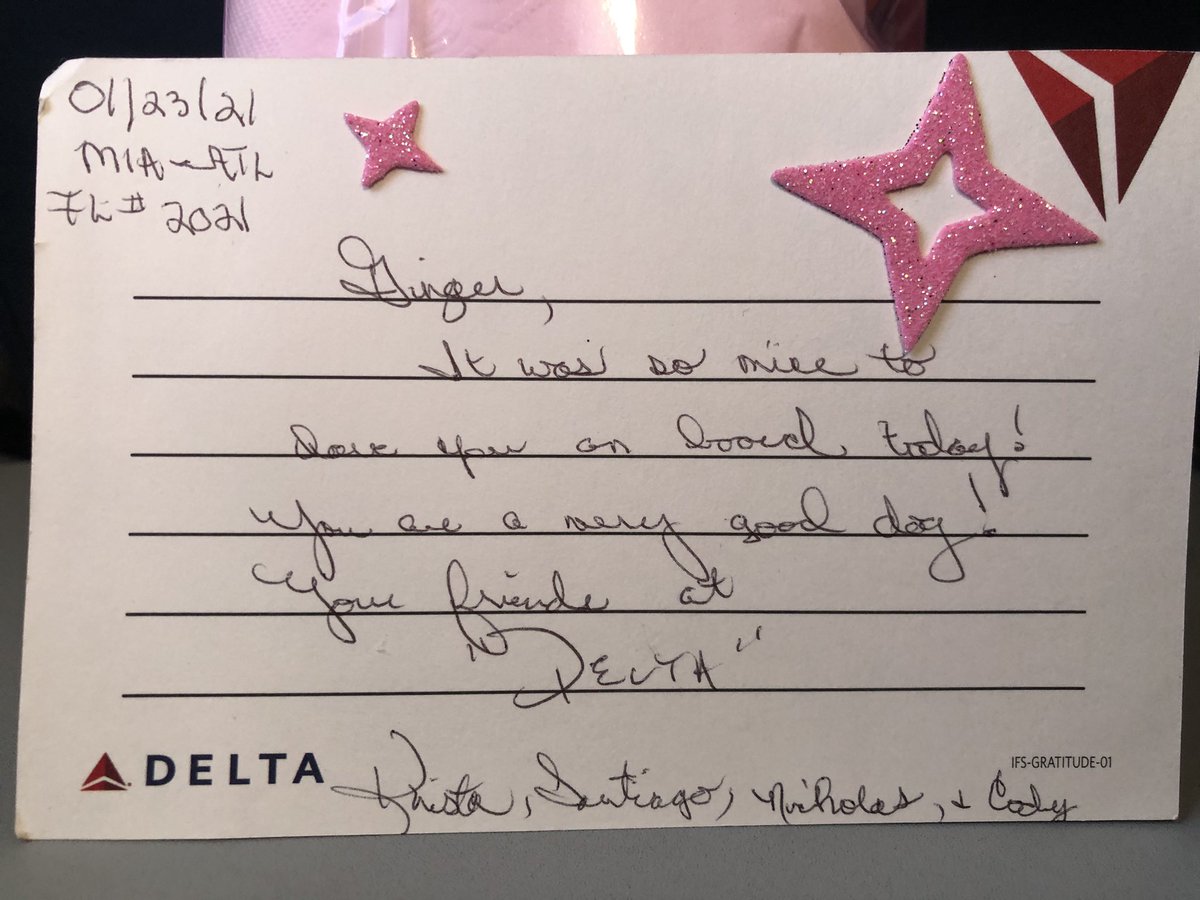 01/23/21
MIA-ATL
FL# 2021
Ginger,
It was so nice to
have you on board today!
You are a very good dog!
Your friends at
"DELTA"
DELTA
IFS-GRATITUDE-01
Krista, Santiago, Nicholas, & Cody